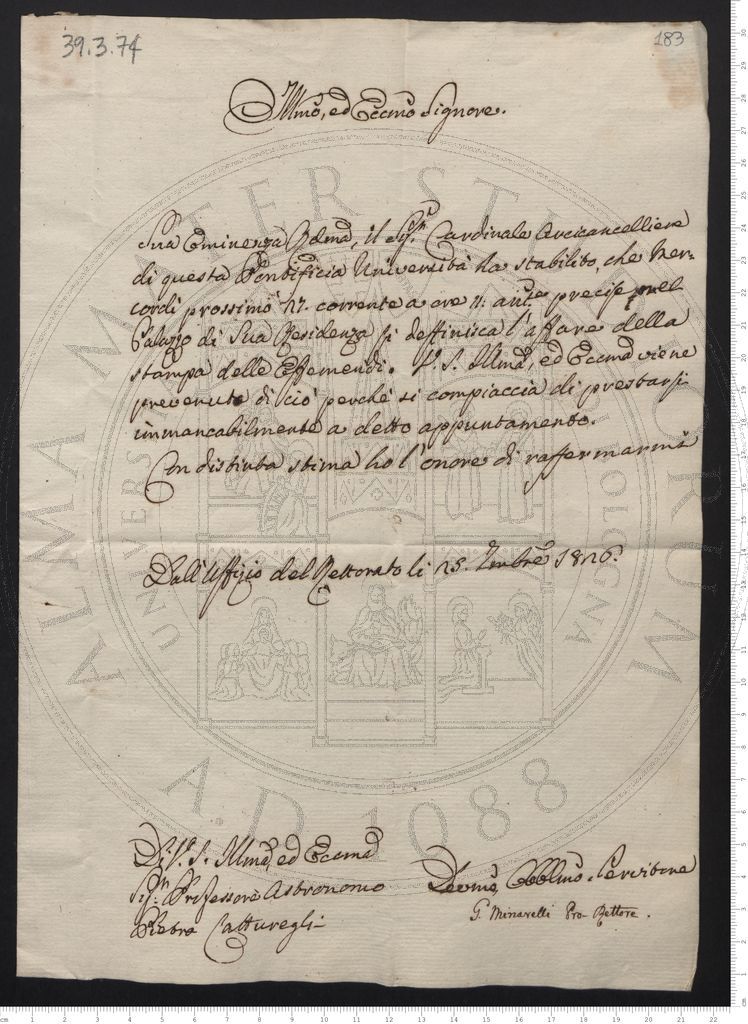 39.3.74
183
Illmo, ed Eccmo Signore.
Sua Eminenza Rdma, il Sigr. Cardinale Arcicancelliere
di questa Pontificia Università ha stabilito, che Mer-
cordì prossimo 27. corrente a ore 11. ant.e precise nel
Palazzo di Sua Residenza si deffinisca l'affare della
stampa delle Effemeridi. V. S. Illma, ed Eccma viene
prevenuta di ciò perché si compiaccia di prestarsi
immancabilmente a detto appuntamento.
Con distinta stima ho l'onore di raffermarmi
Dall'Uffizio del Rettorato li 25. 7mbre 1826.
Di V. S. Illma, ed Eccma
Sigr. Professore Astronomo
Pietro Caturegli
Devmo, Obblmo Servitore
G. Minarelli Pro-Rettore.
ALMA MATER STUDIORUM
UNIVERSITÀ DI BOLOGNA
A.D. 1088